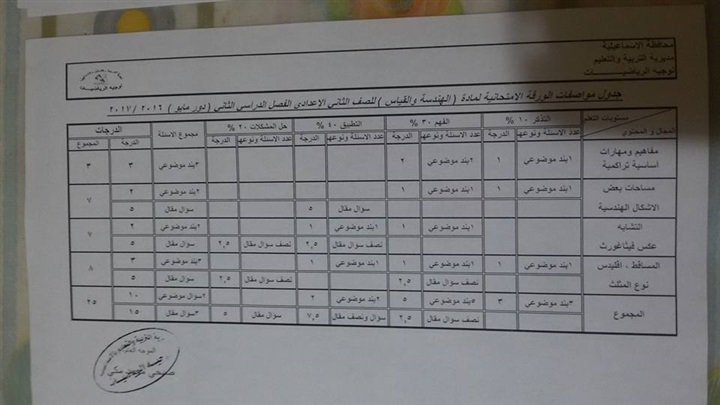 محافظة الاسماعيلية
مديرية التربية والتعليم
توجيه الرياضيـــــات
جدول مواصفات الورقة الامتحانية لمادة ( الهندسة والقياس ) للصف الثاني الإعدادي الفصل الدراسي الثاني ( دور مايو ) ٢٠١٦ / ٢٠١٧
مستويات التعلم التذكر ١٠ % الفهم ٣٠ % التطبيق ٤٠ % حل المشكلات ٢٠ % مجموع الاسئلة الدرجات
المجال و المحتوي عدد الاسئلة ونوعها الدرجة عدد الاسئلة ونوعها الدرجة عدد الاسئلة ونوعها الدرجة عدد الاسئلة ونوعها الدرجة الدرجة المجموع
مفاهيم ومهارات اساسية تراكمية ١بند موضوعي ١ ٢بند موضوعي ٢ ٣بند موضوعي ٣ ٣
مساحات بعض ١بند موضوعي ١ ١بند موضوعي ١ ٢بند موضوعي ٢ ٧
الاشكال الهندسية سؤال مقال ٥ سؤال مقال ٥
التشابه ١بند موضوعي ١ ١بند موضوعي ١ ٢بند موضوعي ٢ ٧
عكس فيثاغورث نصف سؤال مقال ٢,٥ نصف سؤال مقال ٢,٥ سؤال مقال ٥
المساقط ، اقليدس ١بند موضوعي ١ ١بند موضوعي ١ ١بند موضوعي ١ ٣بند موضوعي ٣ ٨
نوع المثلث نصف سؤال مقال ٢,٥ نصف سؤال مقال ٢,٥ سؤال مقال ٥
المجموع ٣بند موضوعي ٣ ٥بند موضوعي ٥ ٢بند موضوعي ٢ ٢سؤال موضوعي ١٠ ٢٥
نصف سؤال مقال ٢,٥ سؤال ونصف مقال ٧,٥ سؤال مقال ٥ ٣سؤال مقال ١٥